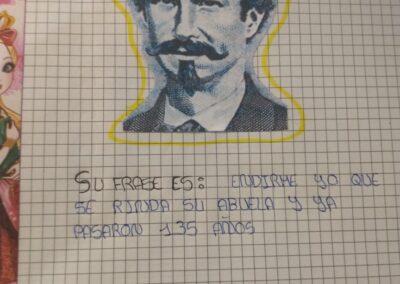 SU FRASE ES: ENDIRME YO QUE
SE RINDA SU ABUELA Y YA
PASARON 135 AÑOS